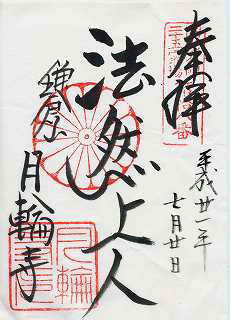 奉拝
平成廿一年
七月廿日
法然上人
鎌倉山
月輪寺
月輪